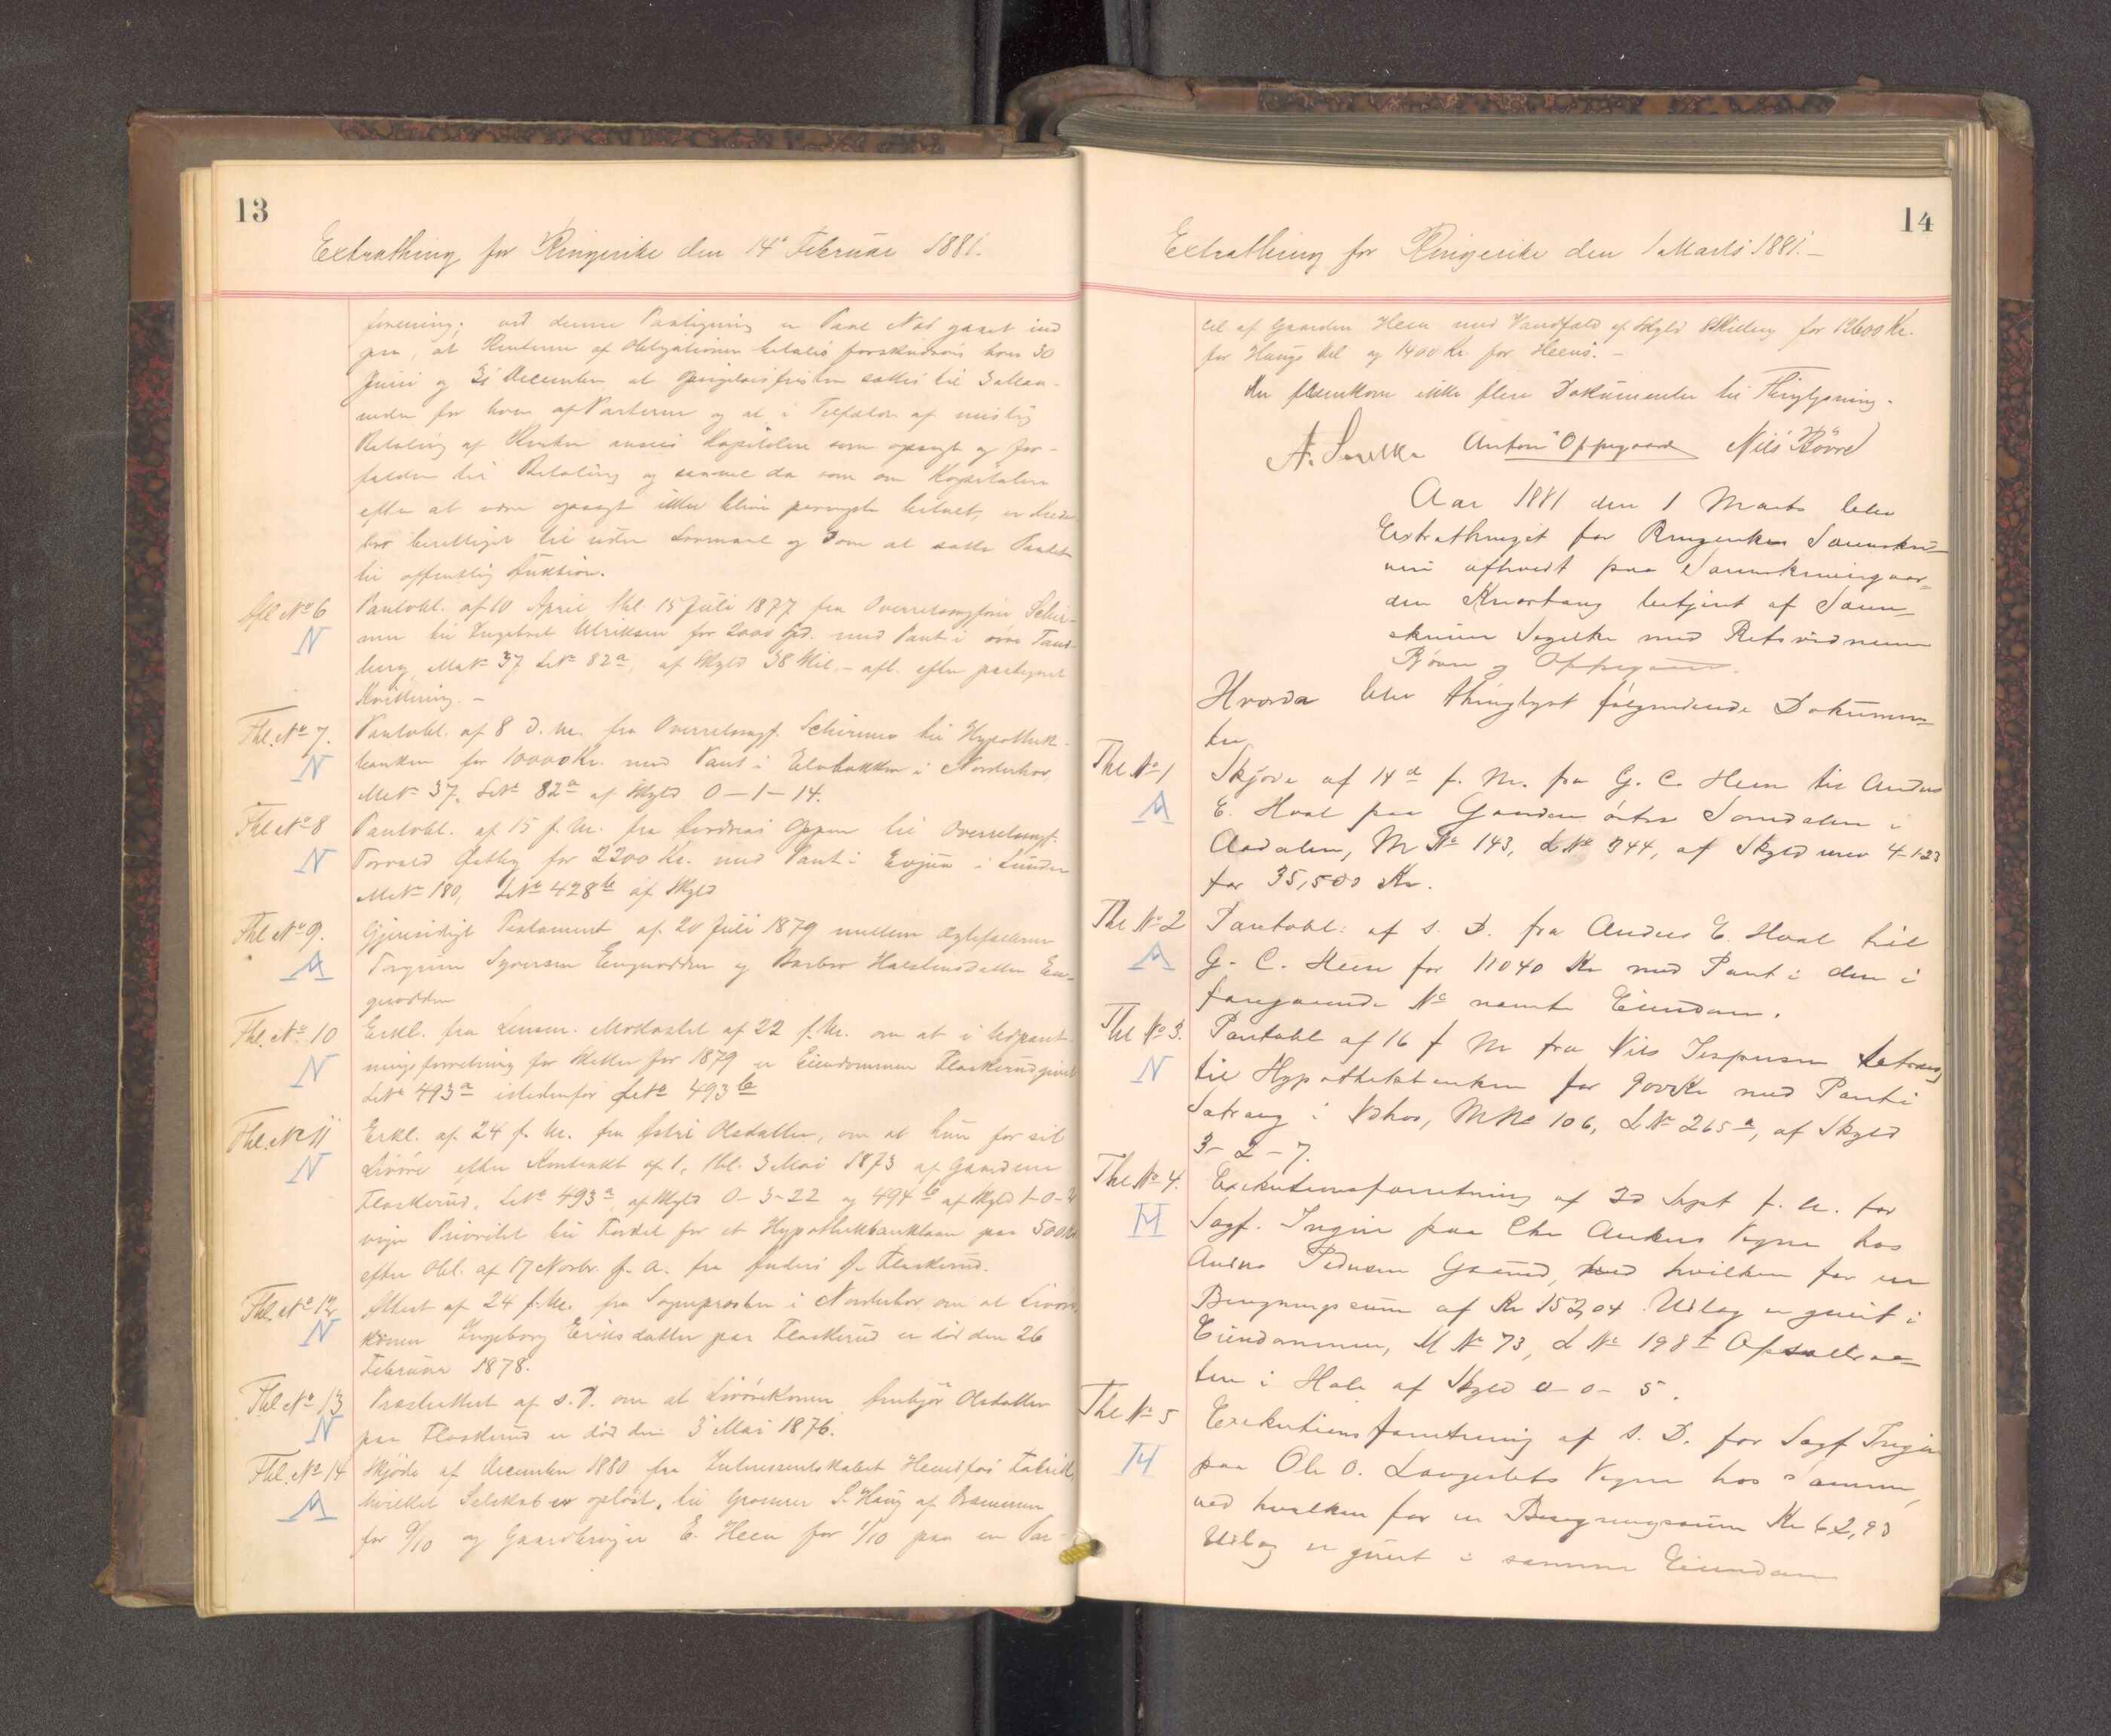 13
Extrathing for Ringerike den 14de Februar 1881.
forening; ved denne Paategning er Paul Nød gaaet ind
paa, at Renterne af Obligationen betales forskudsvis hver 30
Juni og 31 December, at Opsigelsesfristen sættes til 3 Maa-
neder for hver af Parterne og at i Tilfælde af uristig
Betaling af Renter ansees Kapitalen som opsagt og for-
falden til Betaling og samme da som om Kapitalen
efter at være opsagt ikke bliver promte betalt, er Kredi-
tor berettiget til uden Lovmaal og Dom at sætte Pantet
til offentlig Auktion.
Afl. No 6
N
Pantobl. af 10 April thl. 15 Juli 1877 fra Overretssagfører Schir-
mer til Engebret Ulriksen for 2000 Spd. med Pant i øvre Tand-
berg, MNo 37 LNo 82a, af Skyld 38 Skil. - afl. efter paategnet
Kvittering. -
Thl. No 7.
N
Pantobl. af 8 d. M. fra Overretssagf. Schirmer til Hypothek-
banken for 10000 Kr. med Pant i Elvebakken i Norderhov,
MNo 37, LNo 82a af Skyld 0-1-14.
Thl No 8
N
Pantobl. af 15 f. M. fra Andreas Oppen til Overretssagf.
Torvald Østby for 2200 Kr. med Pant i Evjua i Lunder
MNo 180, LNo 428b af Skyld
Thl No 9.
A
Gjensidigt Testament af 20 Juli 1879 mellem Ægtefolkene
Torgrim Syversen Engnodden og Barbro Halstensdatter En-
gnodden
Thl. No 10
N
Erkl. fra Lensm. Modvaldt af 22 f. M. om at i Udpant-
ningsforretning for Skatter for 1879 er Eiendommen Flaskerud givet
LNo 493a istedenfor LNo 493b
Thl. No 11
N
Erkl. af 24 f. M. fra Astri Olsdatter, om at hun for sit
Livøre efter Kontrakt af 1, thl. 3 Mai 1873 af Gaardene
Flaskerud, LNo 493a, af Skyld 0-3-22 og 494b af Skyld 1-0-2
viger Prioritet til Fordel for et Hypothekbanklaan paa 500 Kr
efter Obl. af 17 Novbr. f. A. fra Anders G. Flaskerud.
Thl. No 12
N
Attest af 24 f. M. fra Sogneprесten i Norderhov om at Livøre-
konen Ingeborg Eriksdatter paa Flaskerud er død den 26
Februar 1878.
Thl No 13
N
Presteattest af s. D. om at Livørekonen Anbjør Olsdatter
paa Flaskerud er død den 3 Mai 1876.
Thl. No 14
A
Skjøde af December 1880 fra Interessentskabet Hensfos Fabrik,
hvilket Selskab er opløst, til Grosserer S. Haug af Drammen
for 9/10 og Gaardbruger E. Heen for 1/10 paa en Par-
14
Extrathing for Ringerike den 1 Marts 1881. -
cel af Gaarden Heen med Vandfald af Skyld 8 Skilling for 12600 Kr.
for Haugs Del og 1400 Kr. for Heens. -
Der fremkom ikke flere Dokumenter til Thinglysning.
A. Anton Oppegaard Nils Røvre
Aar 1881 den 1 Marts blev
Extrathinget for Ringerikes Sorenskri-
veri afholdt paa Sorenskrivergaar-
den Knestang betjent af Soren-
skriver med Retsvidnerne
Røvre og Oppegaard.
Hvorda blev thinglyst følgendende Dokumen-
ter
Thl No 1
A
Skjøde af 14de f. M. fra G. C. Heen til Anders
E. Hval paa Gaarden østre Somdalen i
Aadalen, M No 143, LNo 344, af Skyld urev 4-1-23
for 35,500 Kr.
Thl No 2
A
Pantobl: af s. D. fra Anders E. Hval til
G. C. Heen for 11040 Kr med Pant i den i
foregaaende No nævnte Eiendom.
Thl No 3.
N
Pantobl af 16 f M fra Nils Jespersen Satrang
til Hypothekbanken for 900 Kr med Pant i
Satrang i Ndhov, MNo 106, LNo 265a, af Skyld
3-2-7.
Thl No 4.
H
Exekutionsforretning af 20 Sept f. A. for
Sagf. Ingier paa Chr Ankers Vegne hos
Anders Pedersen Gaarud, ved hvilken for en
Beregningssum af Kr 152,04 Udlæg er givet i
Eiendommen, M No 73, L No 198f Opsalbraa-
ten i Hole af Skyld 0-0-5.
Thl No 5
H
Exekutionsforretning af s. D. for Sagf Ingier
paa Ole O. Laugerlets Vegne hos samme,
ved hvilken for en Beregningssum Kr 62,93
Udlæg er givet i samme Eiendom